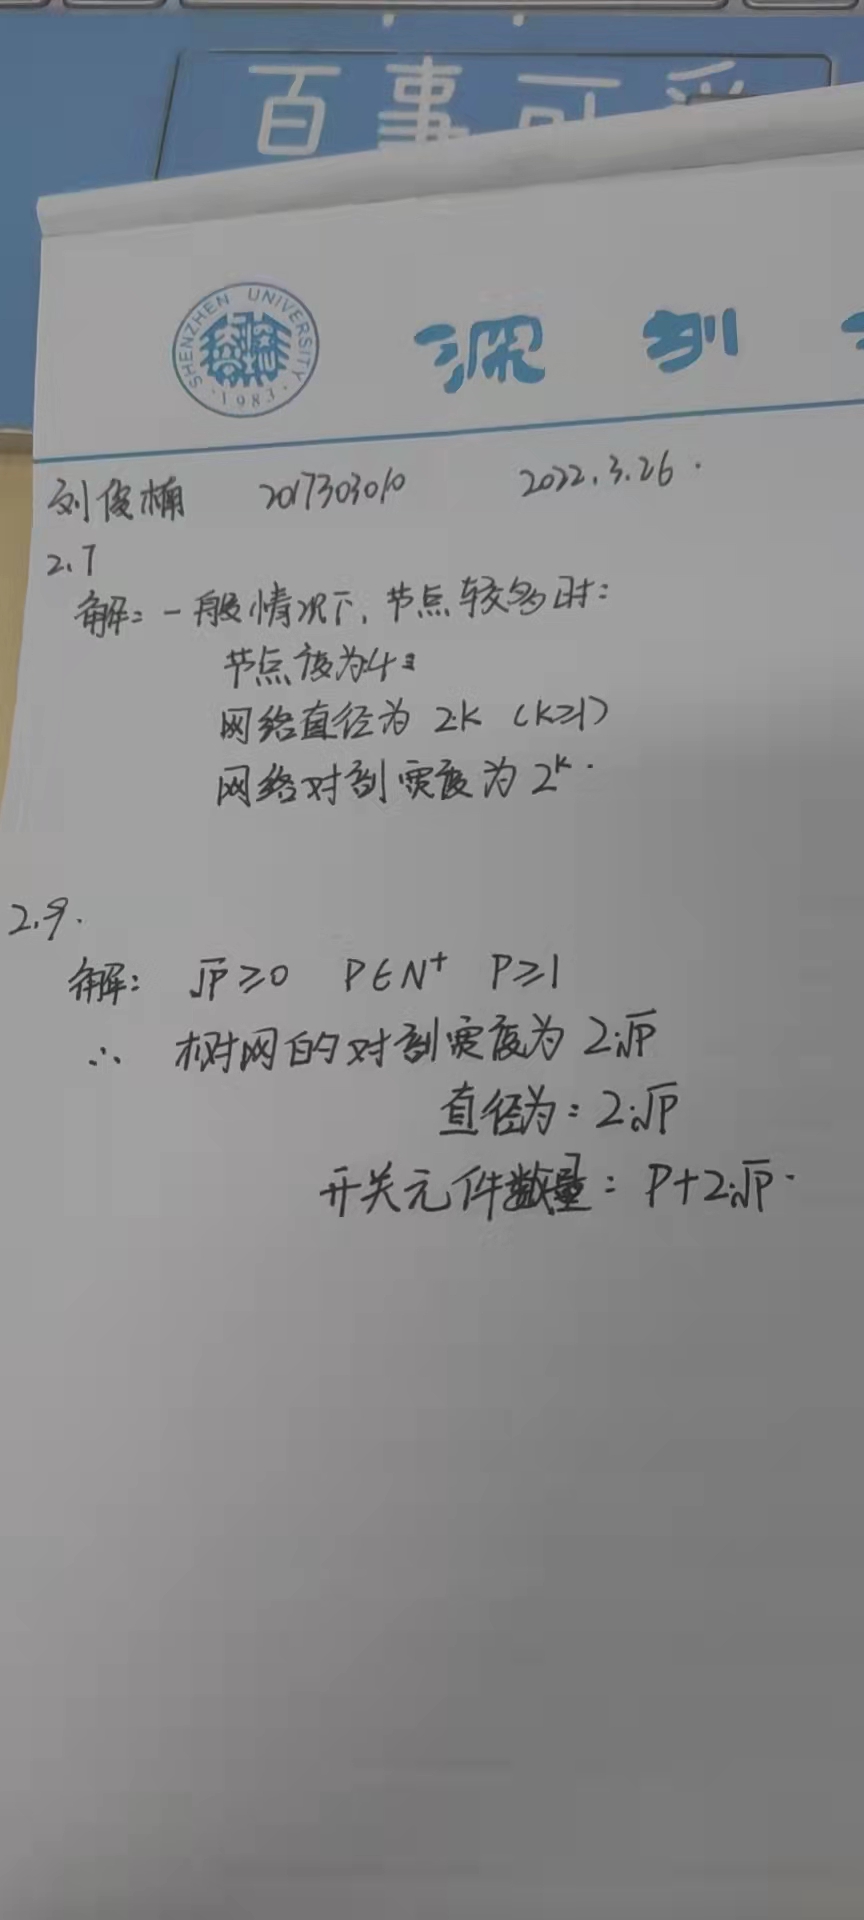 百事可
SHENZHEN UNIVERSITY
1983
深 圳
刘俊楠 2017303010 2022.3.26.
2.7
解：一般情况下，节点较多时：
节点度为4
网络直径为 2k （k≥1）
网络对剖宽度为 2^k.
2.9.
解： √P≥0 P∈N⁺ P≥1
∴ 树网的对剖宽度为 2·√P
直径为：2·√P
开关元件数量： P+2·√P.